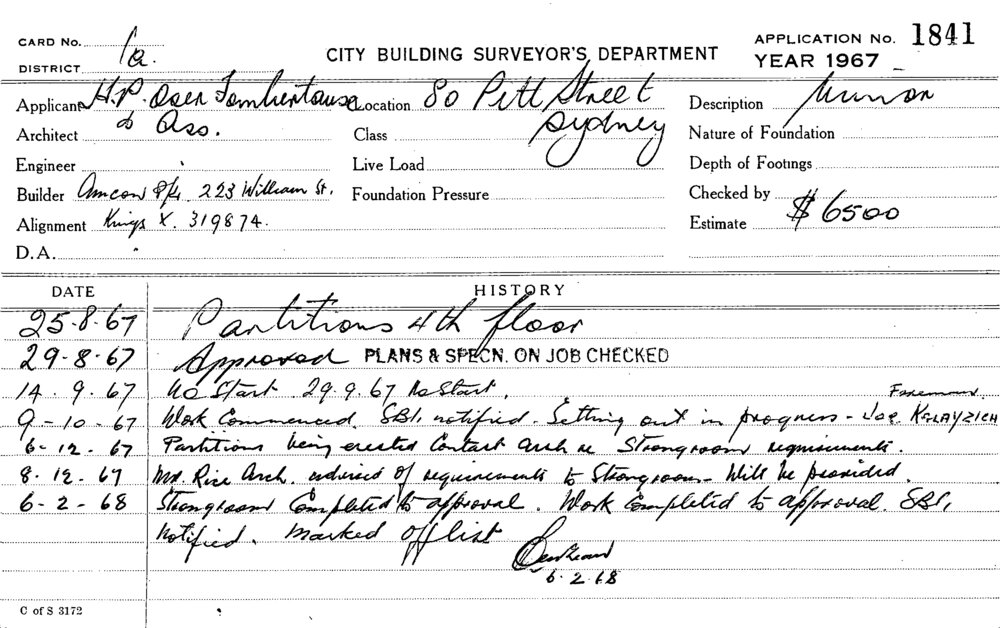 CARD No. 1a
DISTRICT
CITY BUILDING SURVEYOR'S DEPARTMENT
APPLICATION No. 1841
YEAR 1967
Applicant H.P. Oser Fombertaux & Ass.
Location 80 Pitt Street Sydney
Description Minor
Architect
Class
Nature of Foundation
Engineer
Live Load
Depth of Footings
Builder Amcon P/L 223 William St.
Foundation Pressure
Checked by
Alignment Kings X. 319874.
Estimate $6500
D.A.
DATE HISTORY
25-8-67 Partitions 4th floor
29-8-67 Approved PLANS & SPECN. ON JOB CHECKED
14.9.67 No Start 29.9.67 No Start.
9-10-67 Work Commenced. SBI. notified. Setting out in progress - Joe Foreman.
6-12-67 Partitions being erected Contact Arch re Strongroom requirements.
8.12.67 Mr. Rice Arch. advised of requirements to Strongroom - Will be provided.
6-2-68 Strongroom Completed to approval. Work Completed to approval. SBI.
notified. Marked off list
6.2.68
C of S 3172